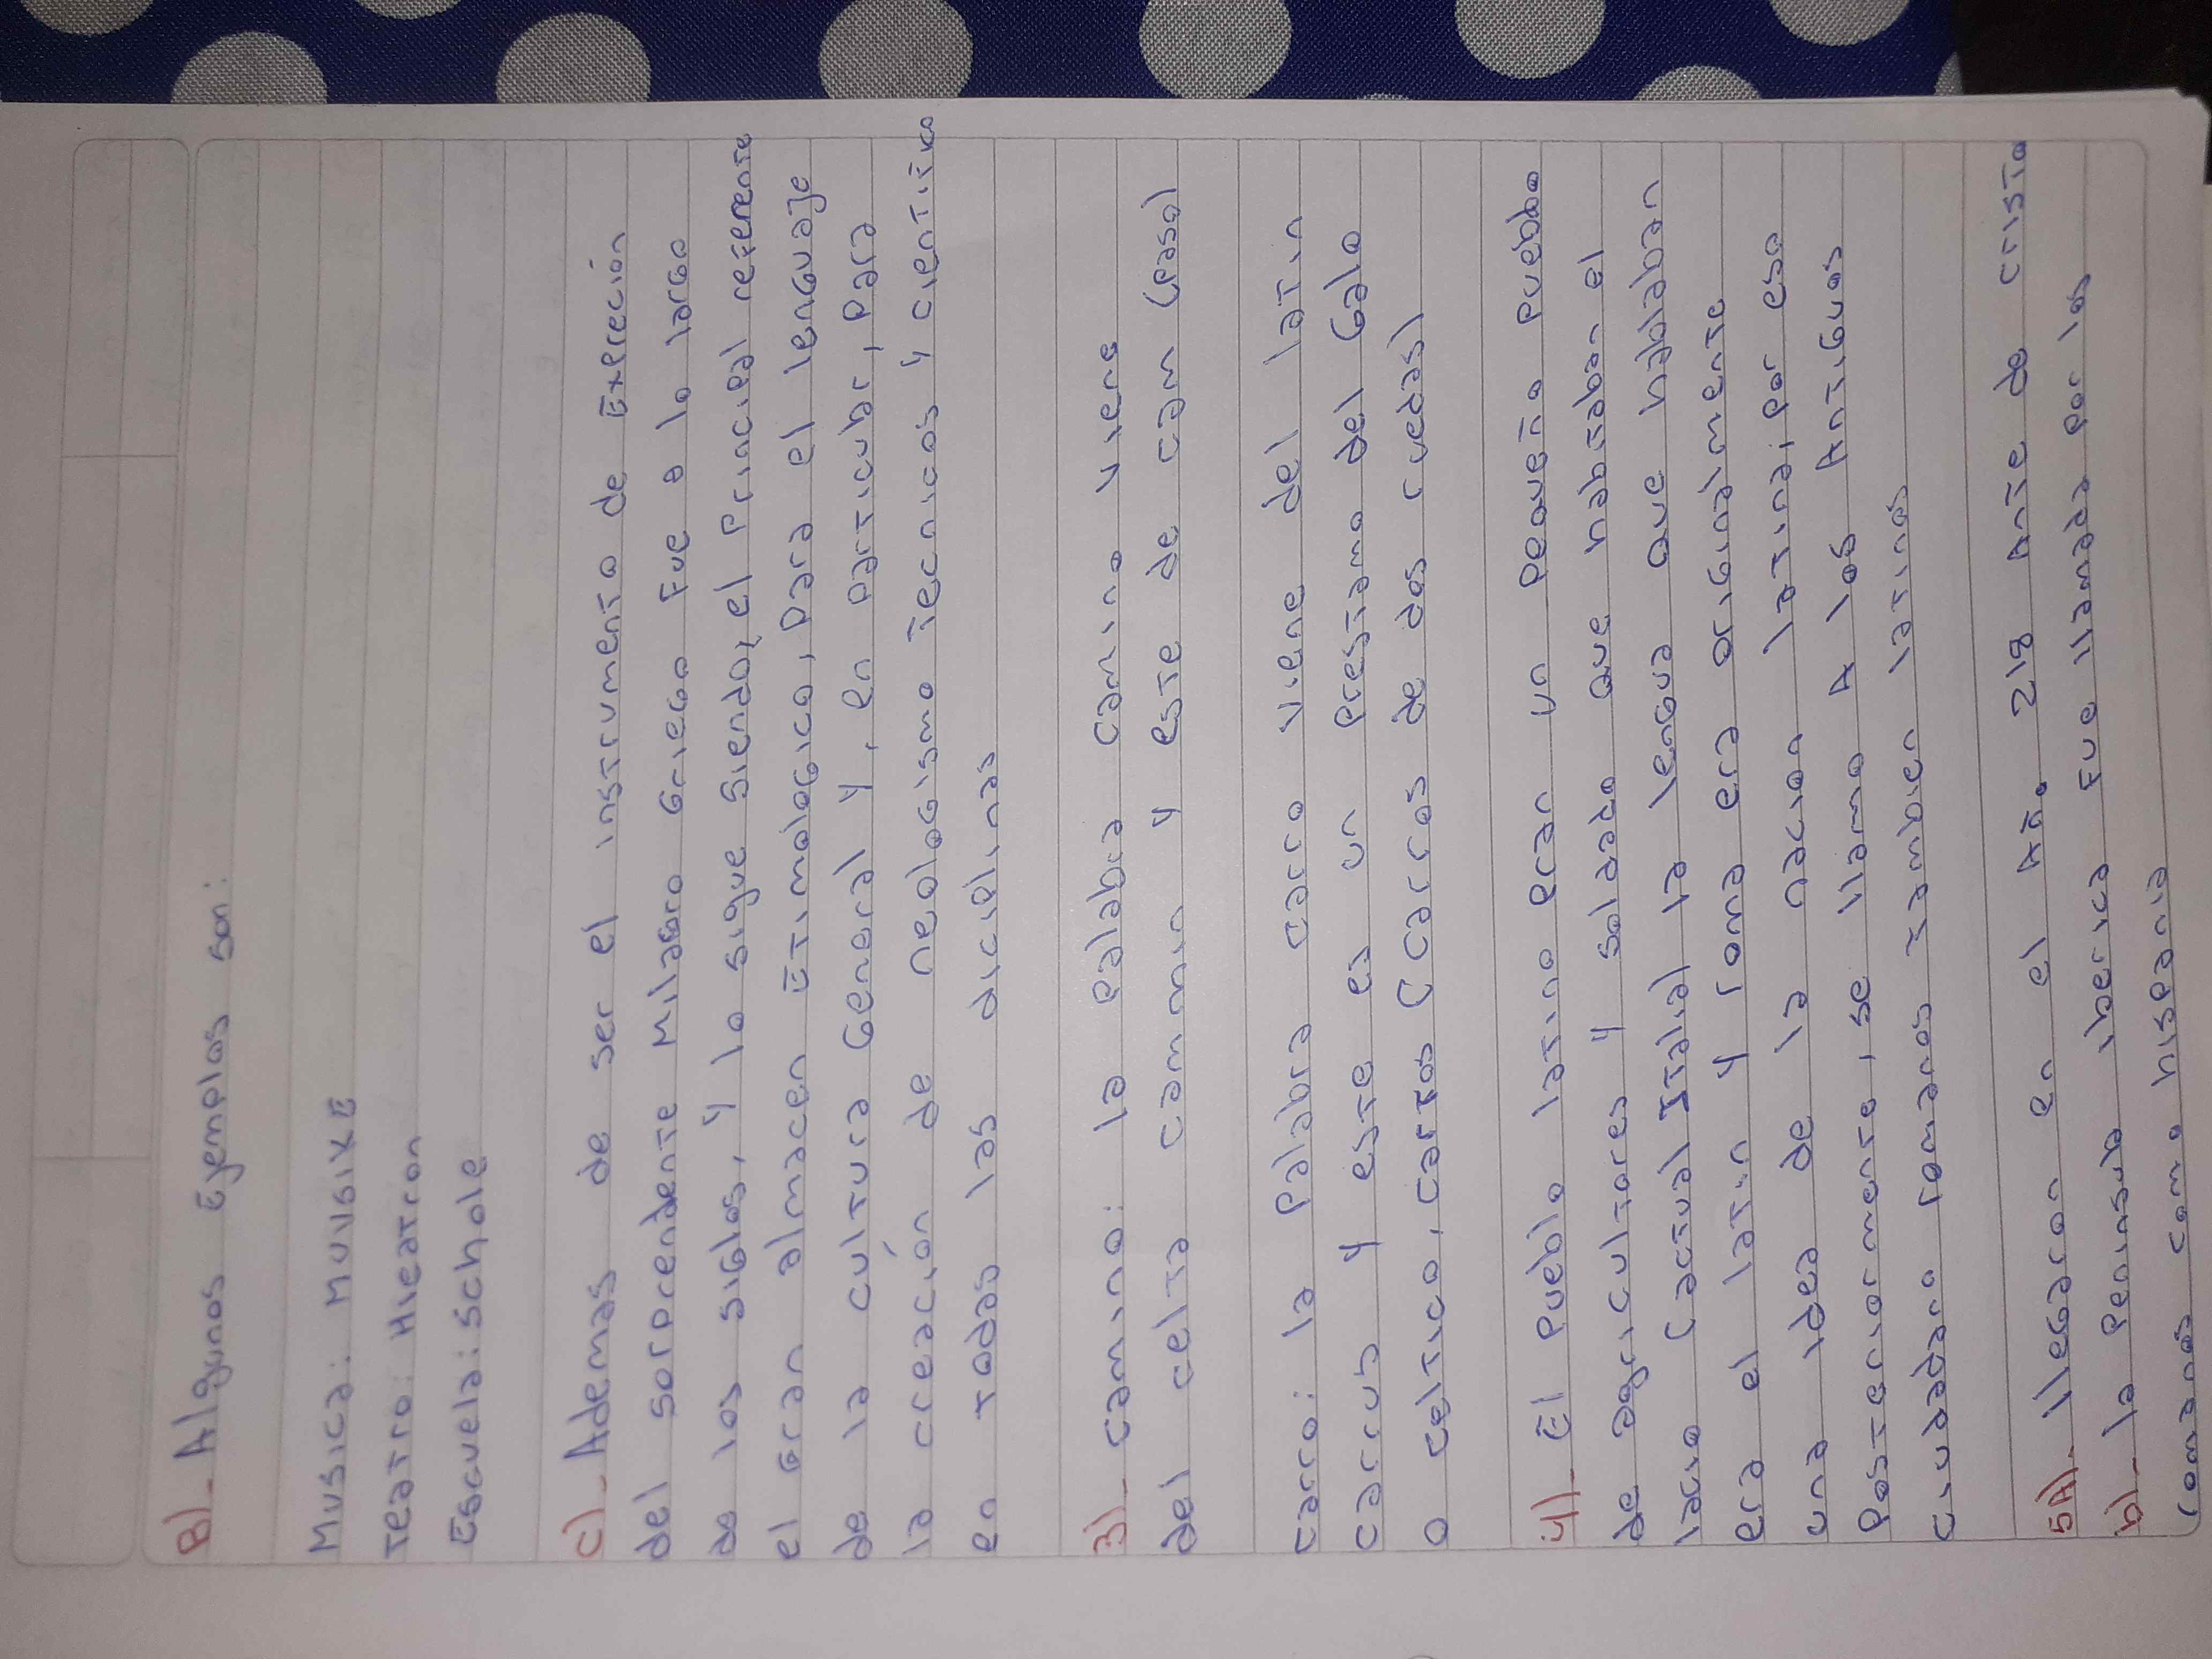 B)- Algunos Ejemplos son:
Musica: MUVSIKE
Teatro: Hieatron
Escuela: Schole
C)- Ademas de ser el instrumento de Expreción
del sorprendente Milagro Griego Fue a lo largo
de los siglos, y lo sigue siendo, el principal referente
el Gran almacen Etimologico, para el lenguaje
de la cultura General y, en particular, para
la creación de neologismo Tecnicos y cientifico
en todas las diciplinas
3)- camino: la palabra camino viene
del celta cammin y este de cam (paso)
carro: la palabra carro viene del latin
carrus y este es un prestamo del Galo
o celtico, carros (carros de dos ruedas)
4)- El pueblo latino eran un pequeño pueblo
de agricultores y soldado que habitaban el
lacio (actual Italia) la lengua que hablaban
era el latin y roma era originalmente
una idea de la nacion latina; por eso
posteriormente, se llamo A los Antiguos
ciudadano romanos tambien latinos
5A)- llegaron en el Añ. 218 Ante de cristo
b)- la peninsula iberica Fue llamada por los
romanos como hispania